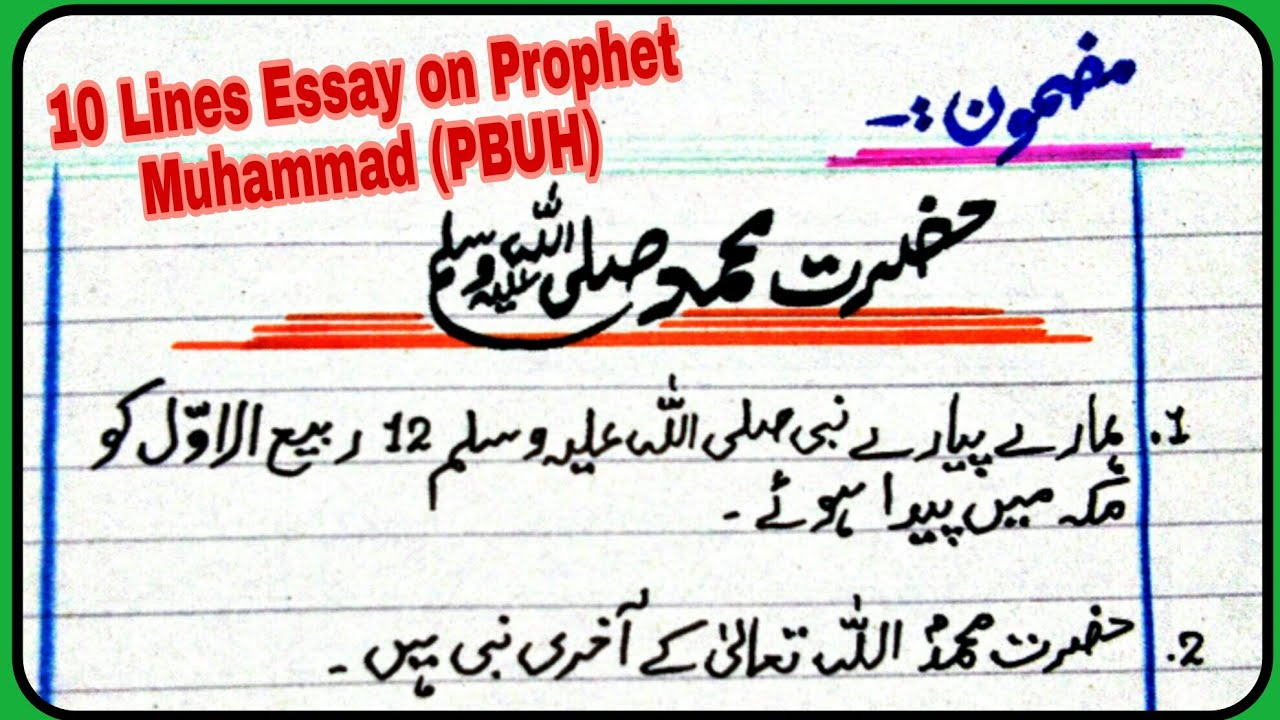 10 Lines Essay on Prophet
Muhammad (PBUH)
مضمون :۔
حضرت محمد صلی اللہ علیہ وسلم
1. ہمارے پیارے نبی صلی اللہ علیہ وسلم 12 ربیع الاوّل کو
مکہ میں پیدا ہوئے ۔
2. حضرت محمدؐ اللہ تعالیٰ کے آخری نبی ہیں ۔